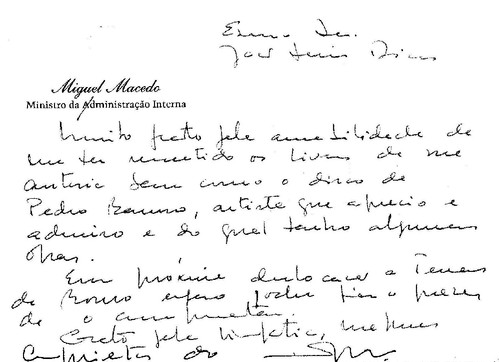 Exmo Sr.
José Luis Dias
Miguel Macedo
Ministro da Administração Interna
Muito grato pela amabilidade de
me ter remetido os livros de sua
autoria bem como o disco de
Pedro Barroso, artista que aprecio e
admiro e do qual tenho algumas
obras.
Em próxima deslocação a Terras
de Bouro espero poder ter o prazer
de o cumprimentar.
Grato pela simpatia, melhores
Cumprimentos do